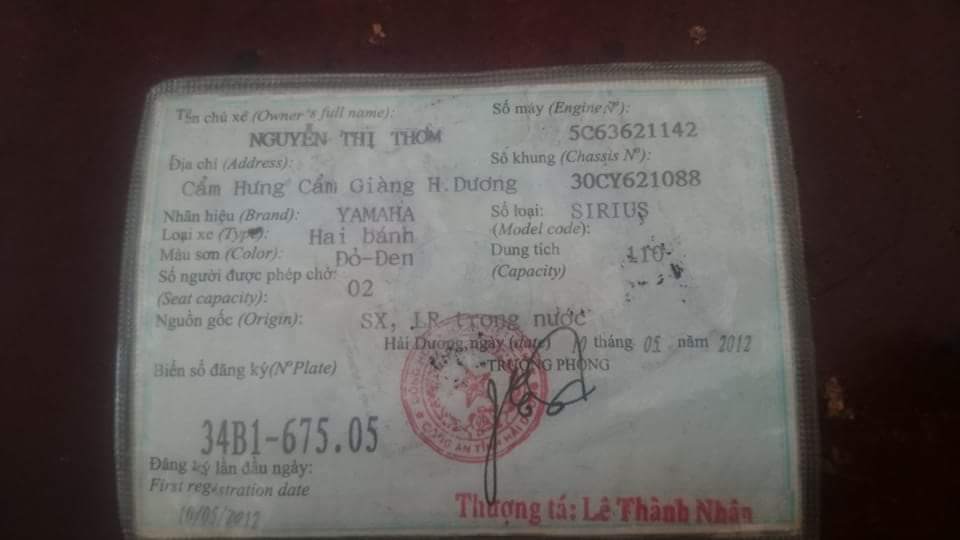 Tên chủ xe (Owner's full name):
NGUYỄN THỊ THƠM
Địa chỉ (Address):
Cẩm Hưng Cẩm Giàng H.Dương
Nhãn hiệu (Brand): YAMAHA
Loại xe (Type): Hai bánh
Màu sơn (Color): Đỏ-Đen
Số người được phép chở: 02
(Seat capacity):
Nguồn gốc (Origin): SX, LR trong nước
Số máy (Engine Nº):
5C63621142
Số khung (Chassis Nº):
30CY621088
Số loại: SIRIUS
(Model code):
Dung tích 110
(Capacity)
Hải Dương, ngày (date) 10 tháng 05 năm 2012
TRƯỞNG PHÒNG
Biển số đăng ký (Nº Plate)
34B1-675.05
Đăng ký lần đầu ngày:
First registration date
10/05/2012
CÔNG AN TỈNH HẢI DƯƠNG
Thượng tá: Lê Thành Nhân